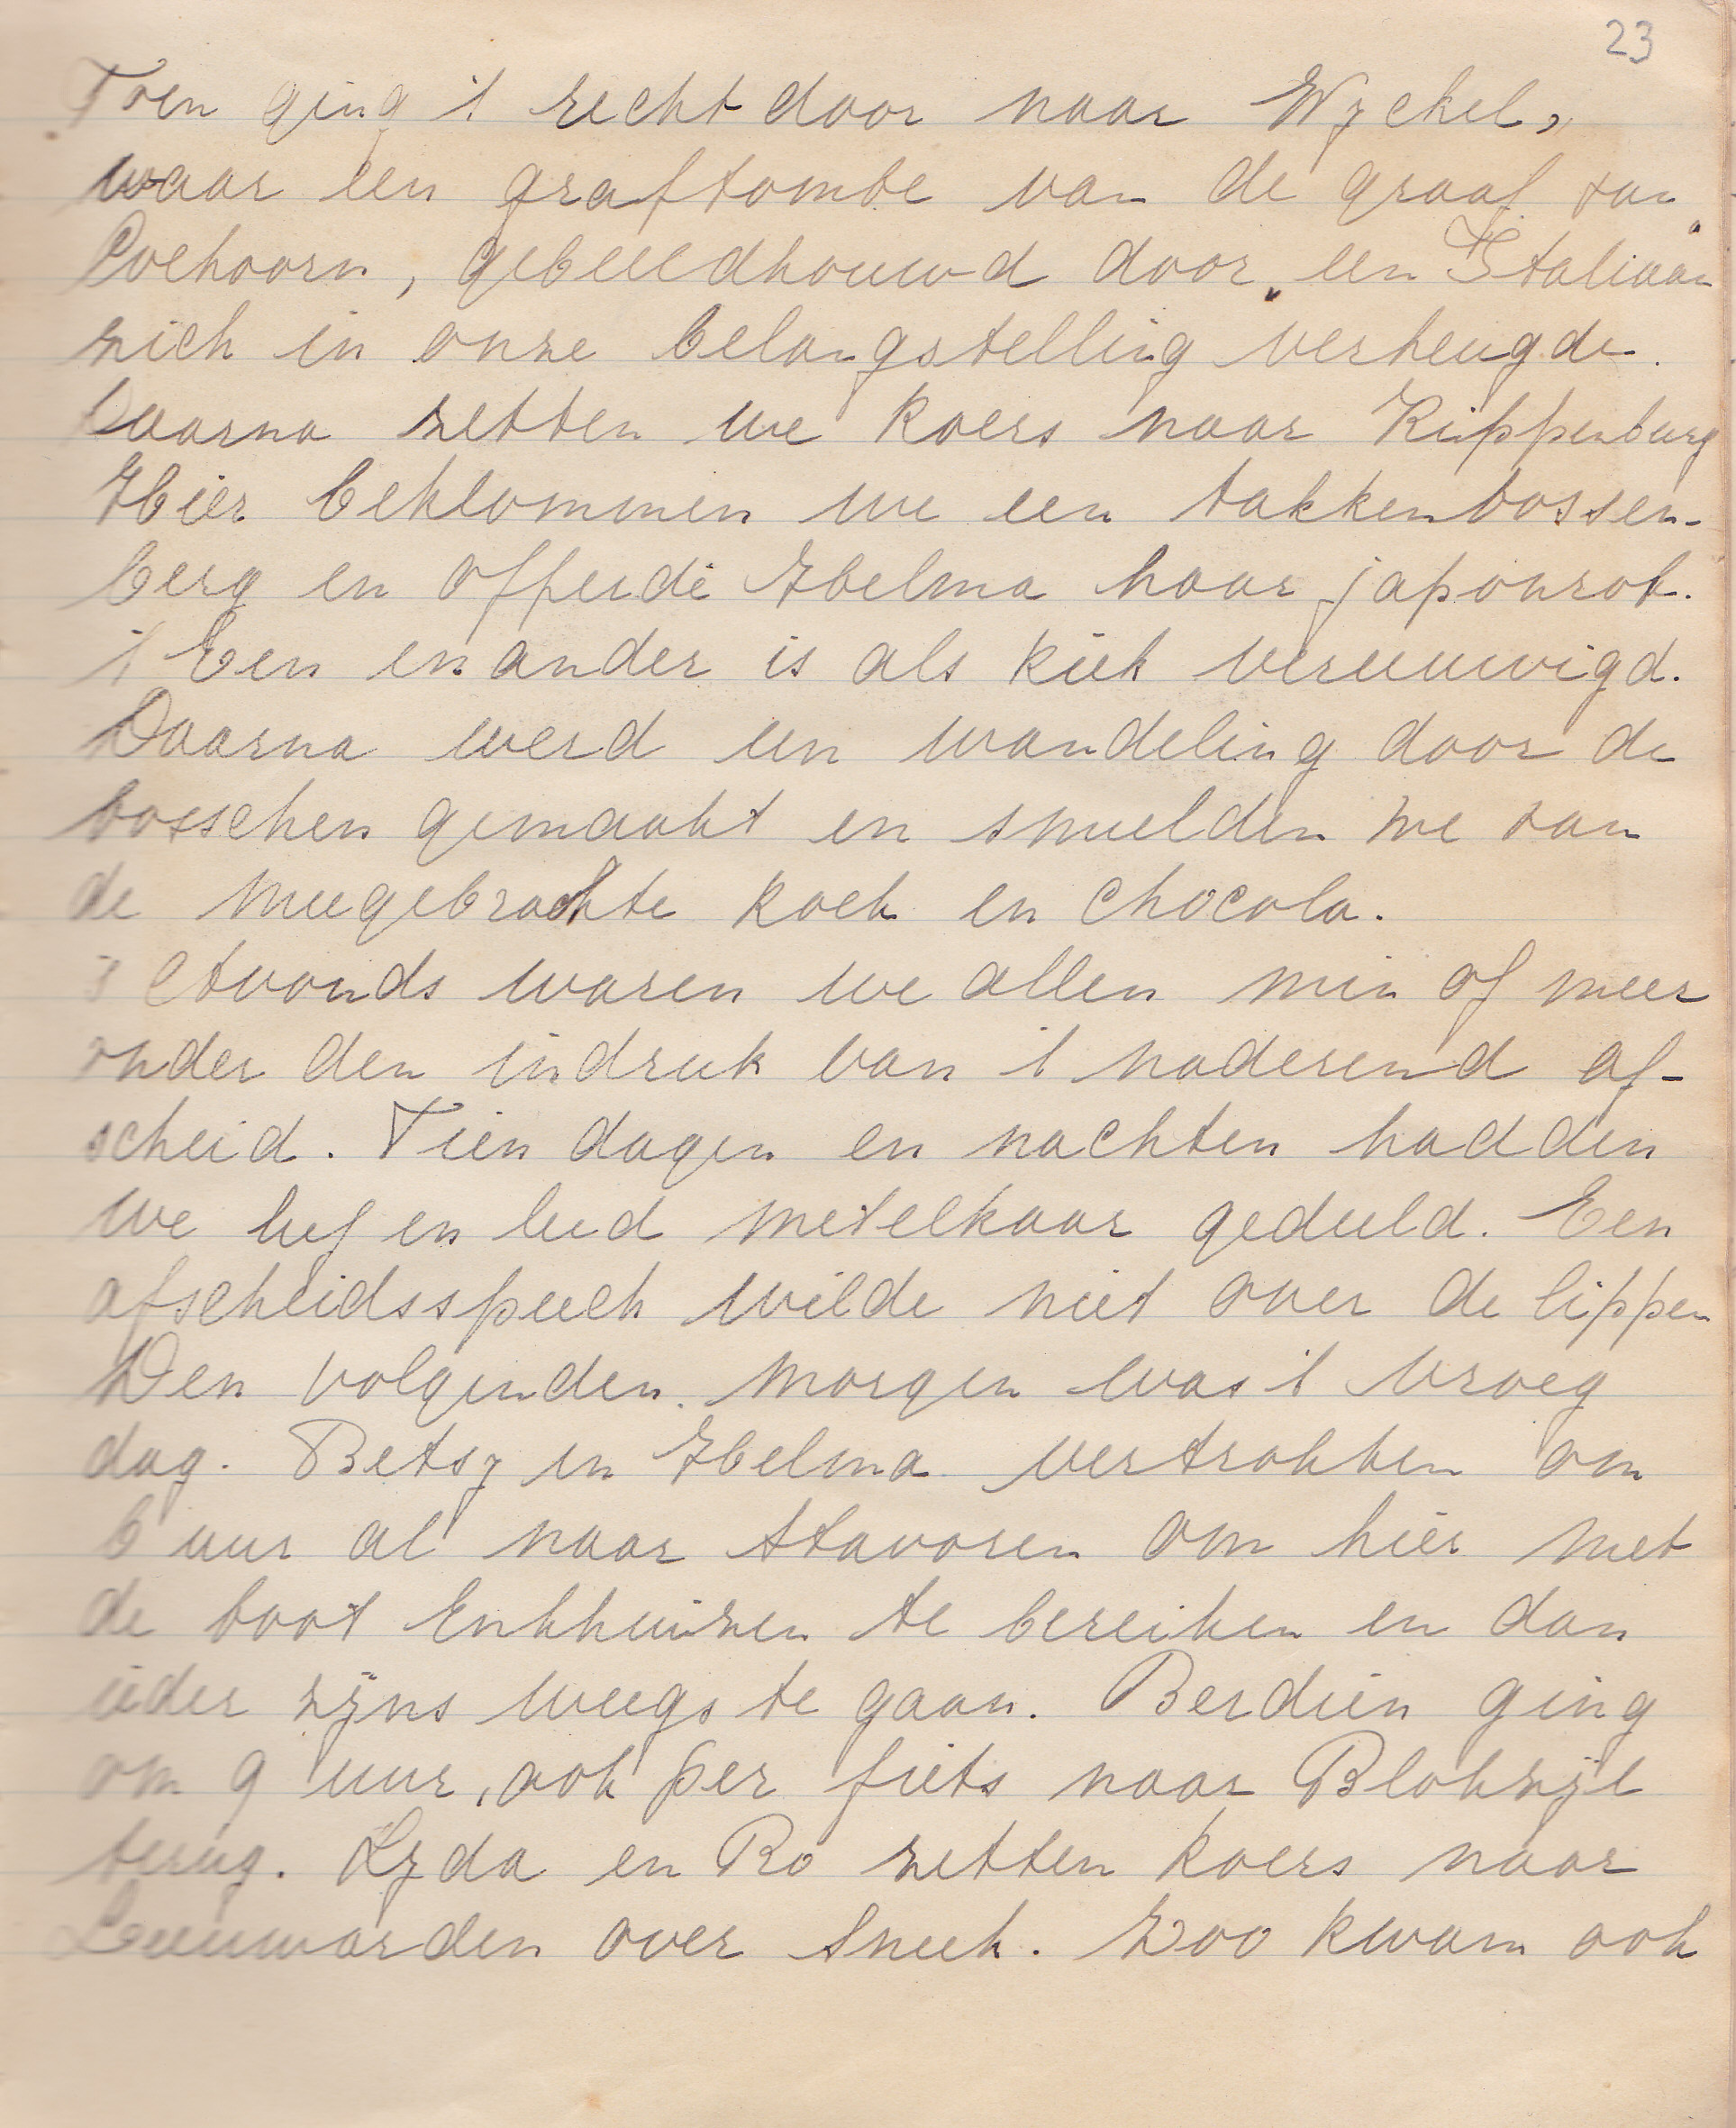 23
Toen ging 't recht door naar Wyckel,
waar een graftombe van de graaf van
Coehoorn, gebeeldhouwd door een Italiaan
zich in onze belangstelling verheugde.
Daarna zetten we koers naar Rippenburg
Hier beklommen we een takkenbossen-
berg en offerde Helma haar japonrok.
't Een en ander is als kiek vereeuwigd.
Daarna werd een wandeling door de
bosschen gemaakt en smulden we van
de meegebrachte koek en chocola.
's Avonds waren we allen min of meer
onder den indruk van 't naderend af-
scheid. Tien dagen en nachten hadden
we lief en leed met elkaar gedeeld. Een
afscheidsspeech wilde niet over de lippen
Den volgenden morgen was 't vroeg
dag. Betsy en Helma vertrokken om
6 uur al naar Stavoren om hier met
de boot Enkhuizen te bereiken en dan
ieder zijns weegs te gaan. Berdien ging
om 9 uur, ook per fiets naar Blokzijl
terug. Lyda en Ro zetten koers naar
Leeuwarden over Sneek. Zoo kwam ook